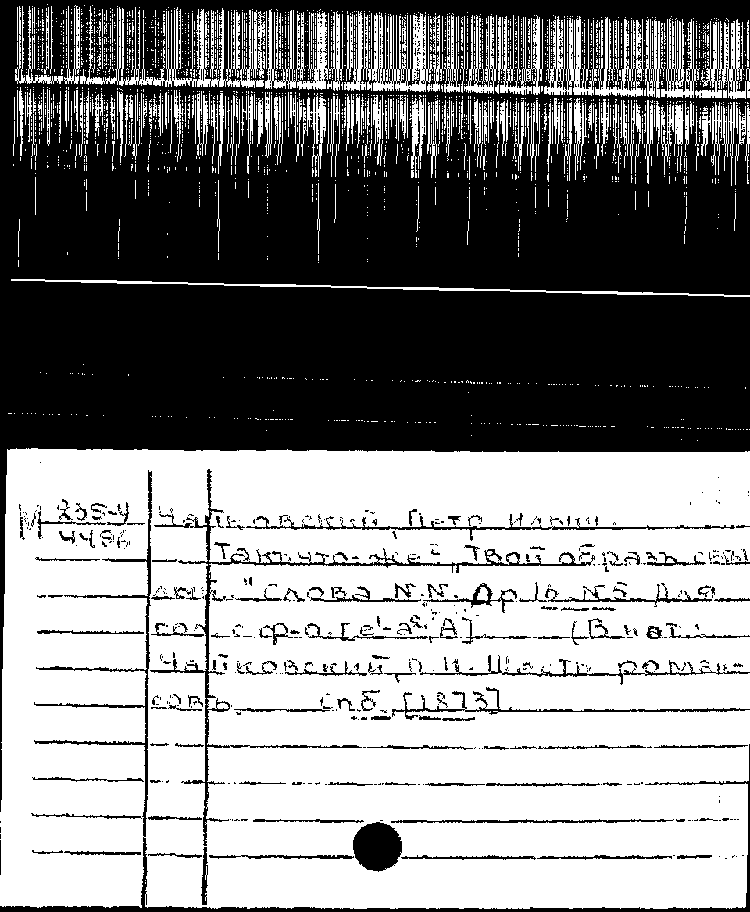 М 235-4 Чайковский, Петр Ильич.
4486 Такъ что-же? "Твой образъ свѣт-
лый." Слова N.N. Ор. 16 N 5 Для
гол. с ф-п. [e¹-a²; A] (В нот.:
Чайковский, П. И. Шесть роман-
совъ. Спб. [1873].